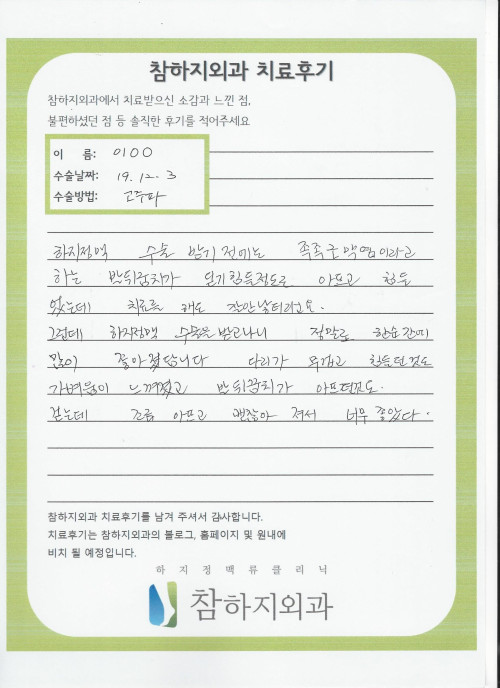 참하지외과 치료후기
참하지외과에서 치료받으신 소감과 느낀 점,
불편하셨던 점 등 솔직한 후기를 적어주세요
이 름: 이OO
수술날짜: 19. 12. 3
수술방법: 고주파
하지정맥 수술 받기 전에는 족족근막염이라고
하는 발뒤꿈치가 걷기힘들정도로 아프고 힘들
었는데 치료를 해도 잘안낳터라고요.
그런데 하지정맥 수술을받고나니 정말로 한순간에
많이 좋아졌답니다 다리가 무겁고 힘들던것도
가벼움이 느껴졌고 발뒤꿈치가 아프던것도.
걷는데 조금 아프고 괜찮아 져서 너무 좋았다.
참하지외과 치료후기를 남겨 주셔서 감사합니다.
치료후기는 참하지외과의 블로그, 홈페이지 및 원내에
비치 될 예정입니다.
하지정맥류클리닉
참하지외과